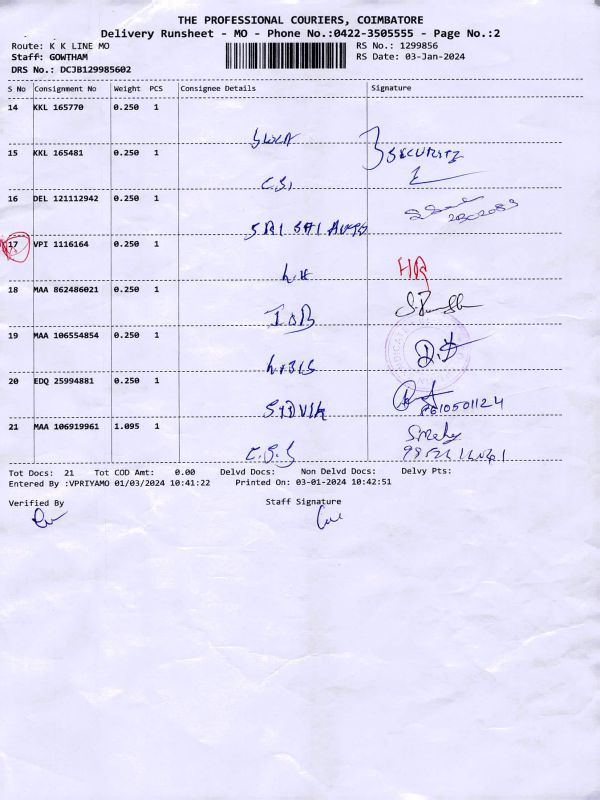 THE PROFESSIONAL COURIERS, COIMBATORE
Delivery Runsheet - MO - Phone No.:0422-3505555 - Page No.:2
Route: K K LINE MO RS No.: 1299856
Staff: GOWTHAM RS Date: 03-Jan-2024
DRS No.: DCJB129985602
S No Consignment No Weight PCS Consignee Details Signature
14 KKL 165770 0.250 1
15 KKL 165481 0.250 1 SECURITY
C.S,
16 DEL 121112942 0.250 1
SRI SAI AUTO
17 VPI 1116164 0.250 1
L.H HR
18 MAA 862486021 0.250 1
IOB
19 MAA 106554854 0.250 1
20 EDQ 25994881 0.250 1
21 MAA 106919961 1.095 1
C.S.S
Tot Docs: 21 Tot COD Amt: 0.00 Delvd Docs: Non Delvd Docs: Delvy Pts:
Entered By :VPRIYAMO 01/03/2024 10:41:22 Printed On: 03-01-2024 10:42:51
Verified By Staff Signature